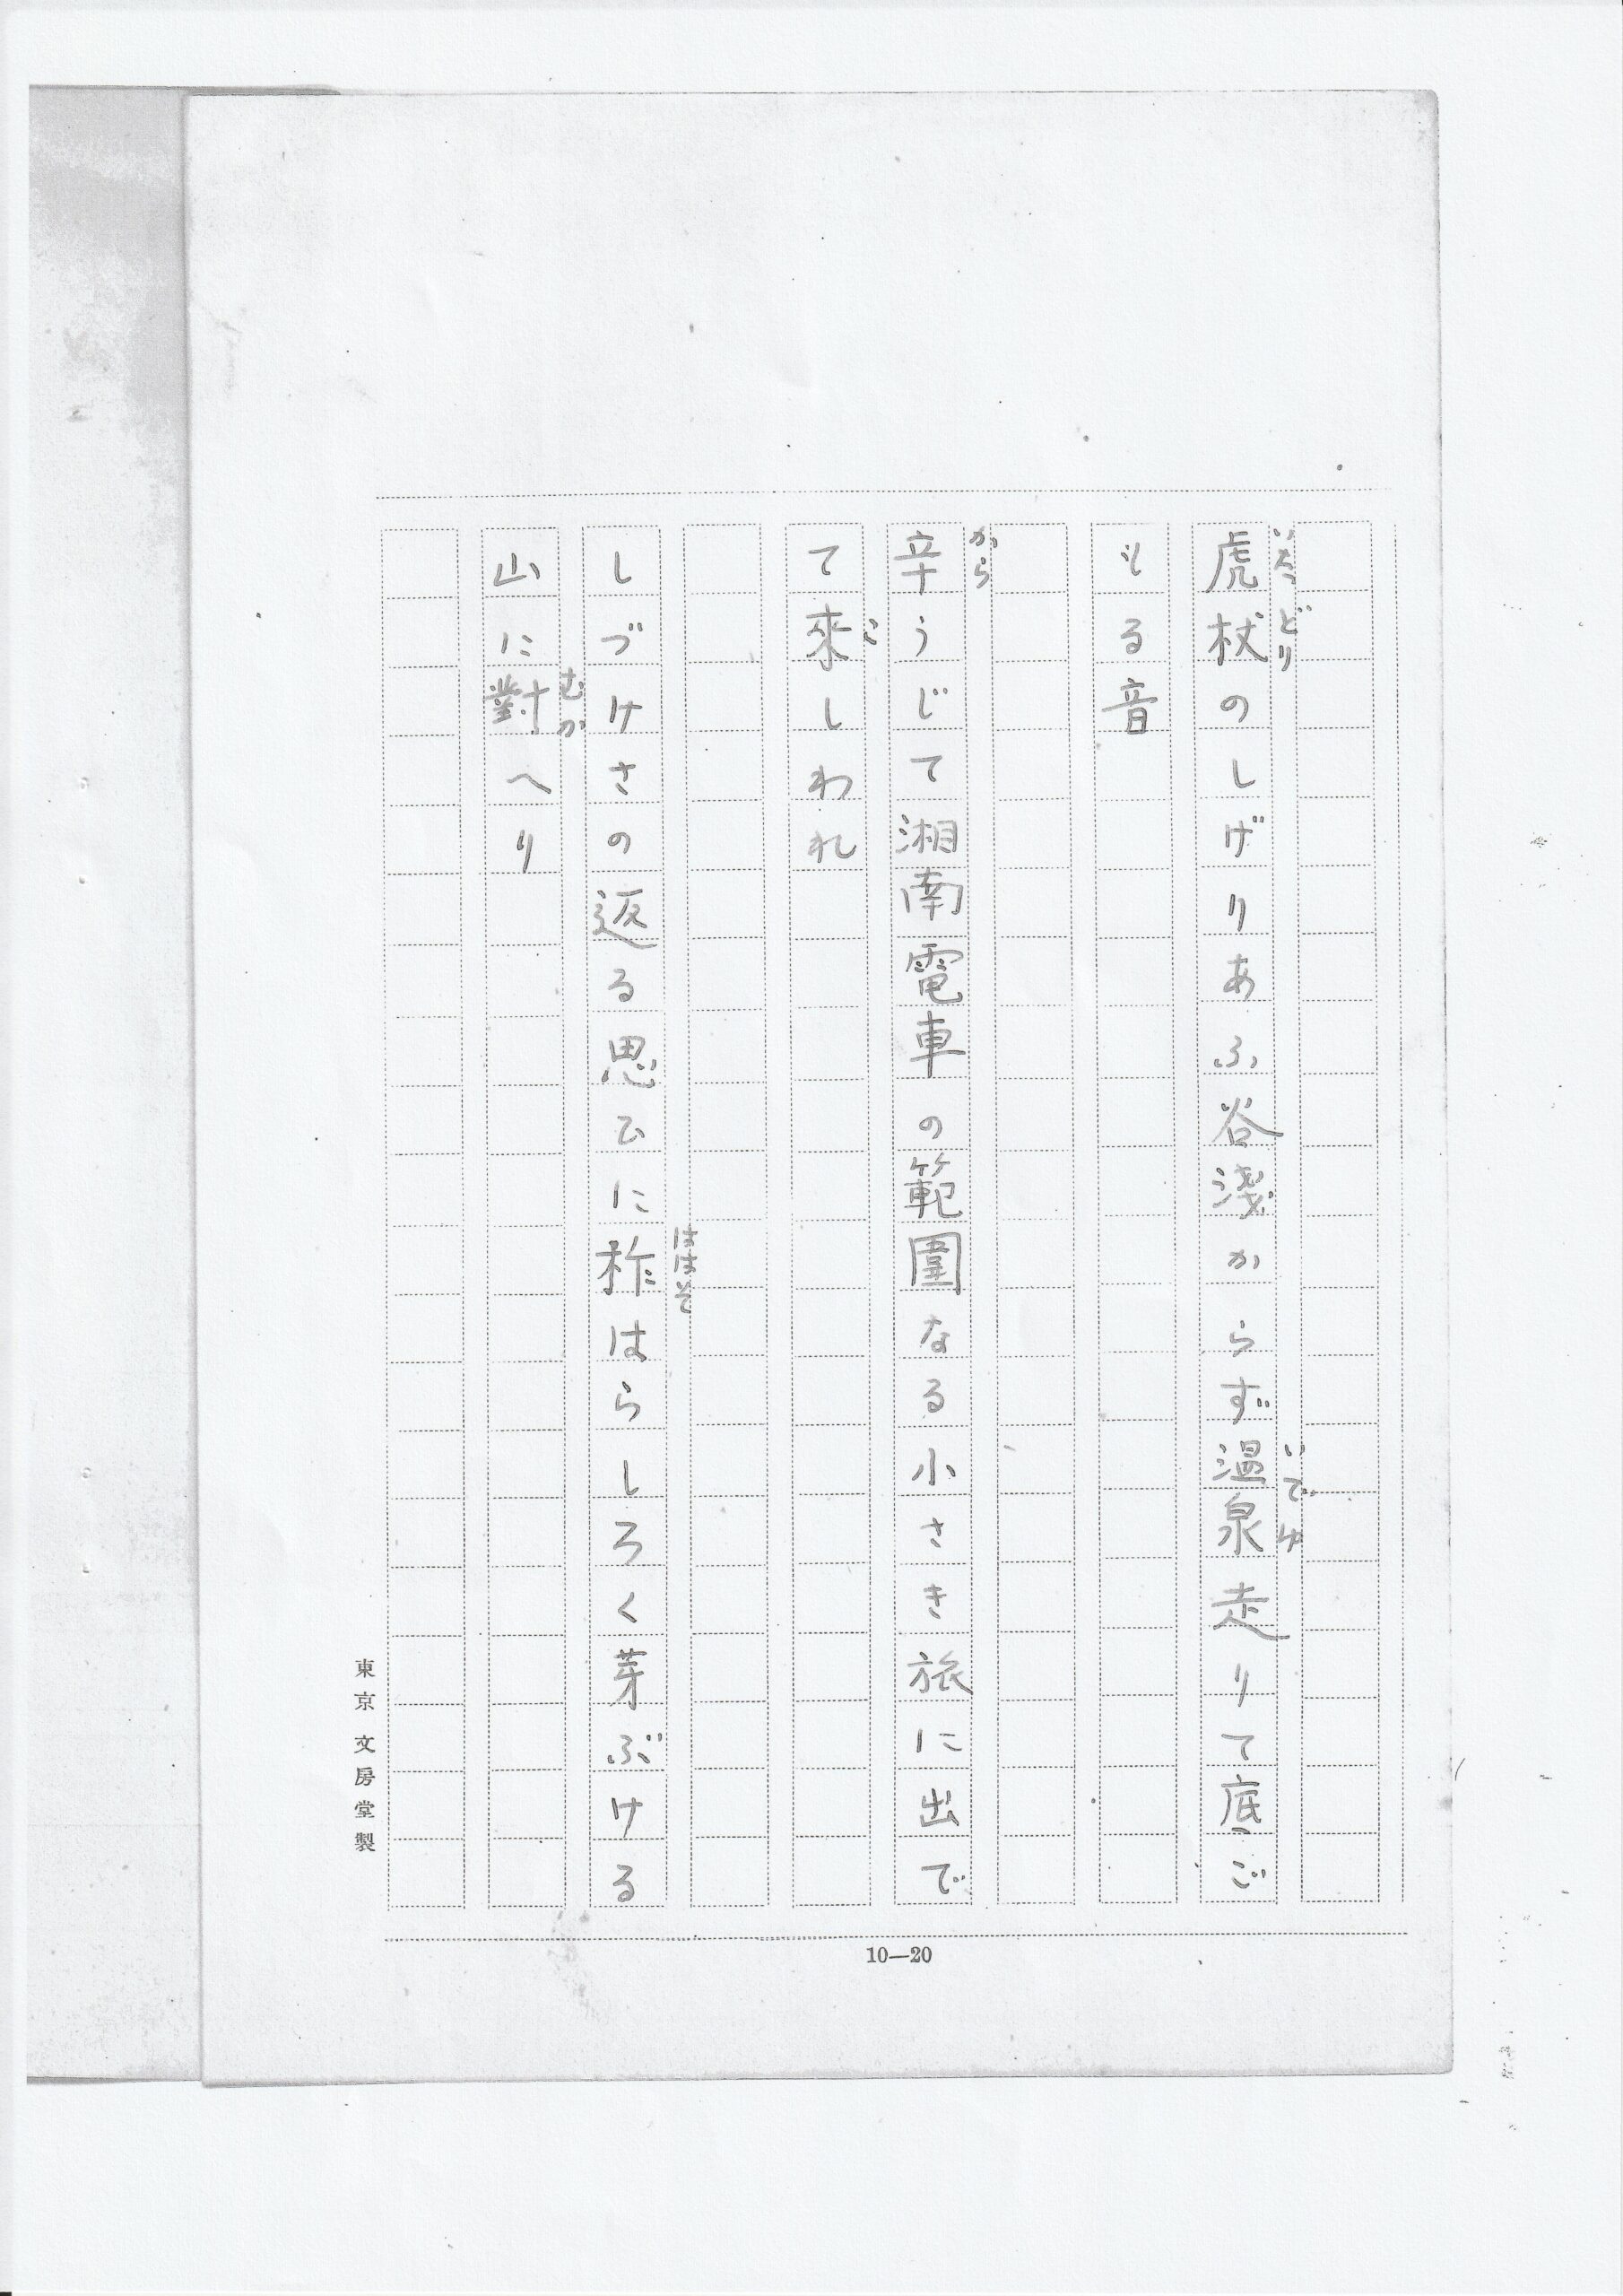 虎杖のしげりあふ谷淺からず温泉走りて底ご
いたどり
いでゆ
もる音
辛うじて湘南電車の範圍なる小さき旅に出で
から
て來しわれ
こ
しづけさの返る思ひに柞はらしろく芽ぶける
ははそ
山に對へり
むか
東京 文房堂製
10—20